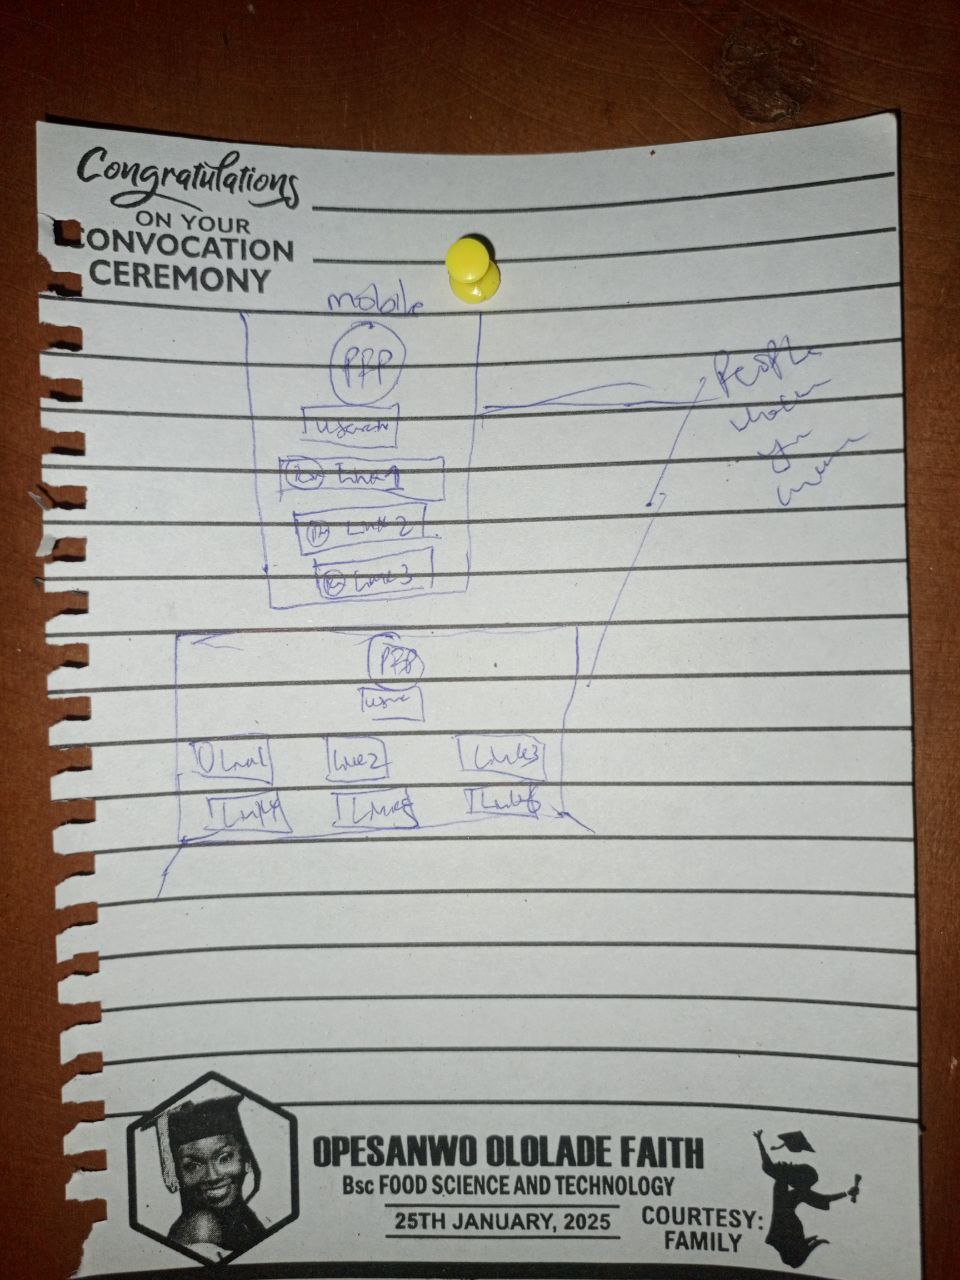 Congratulations
ON YOUR
CONVOCATION
CEREMONY
mobile
PFP
Link 2
Link 3
People
PFP
Link1
Link2
Link3
Link4
Link5
Link6
OPESANWO OLOLADE FAITH
Bsc FOOD SCIENCE AND TECHNOLOGY
25TH JANUARY, 2025
COURTESY:
FAMILY